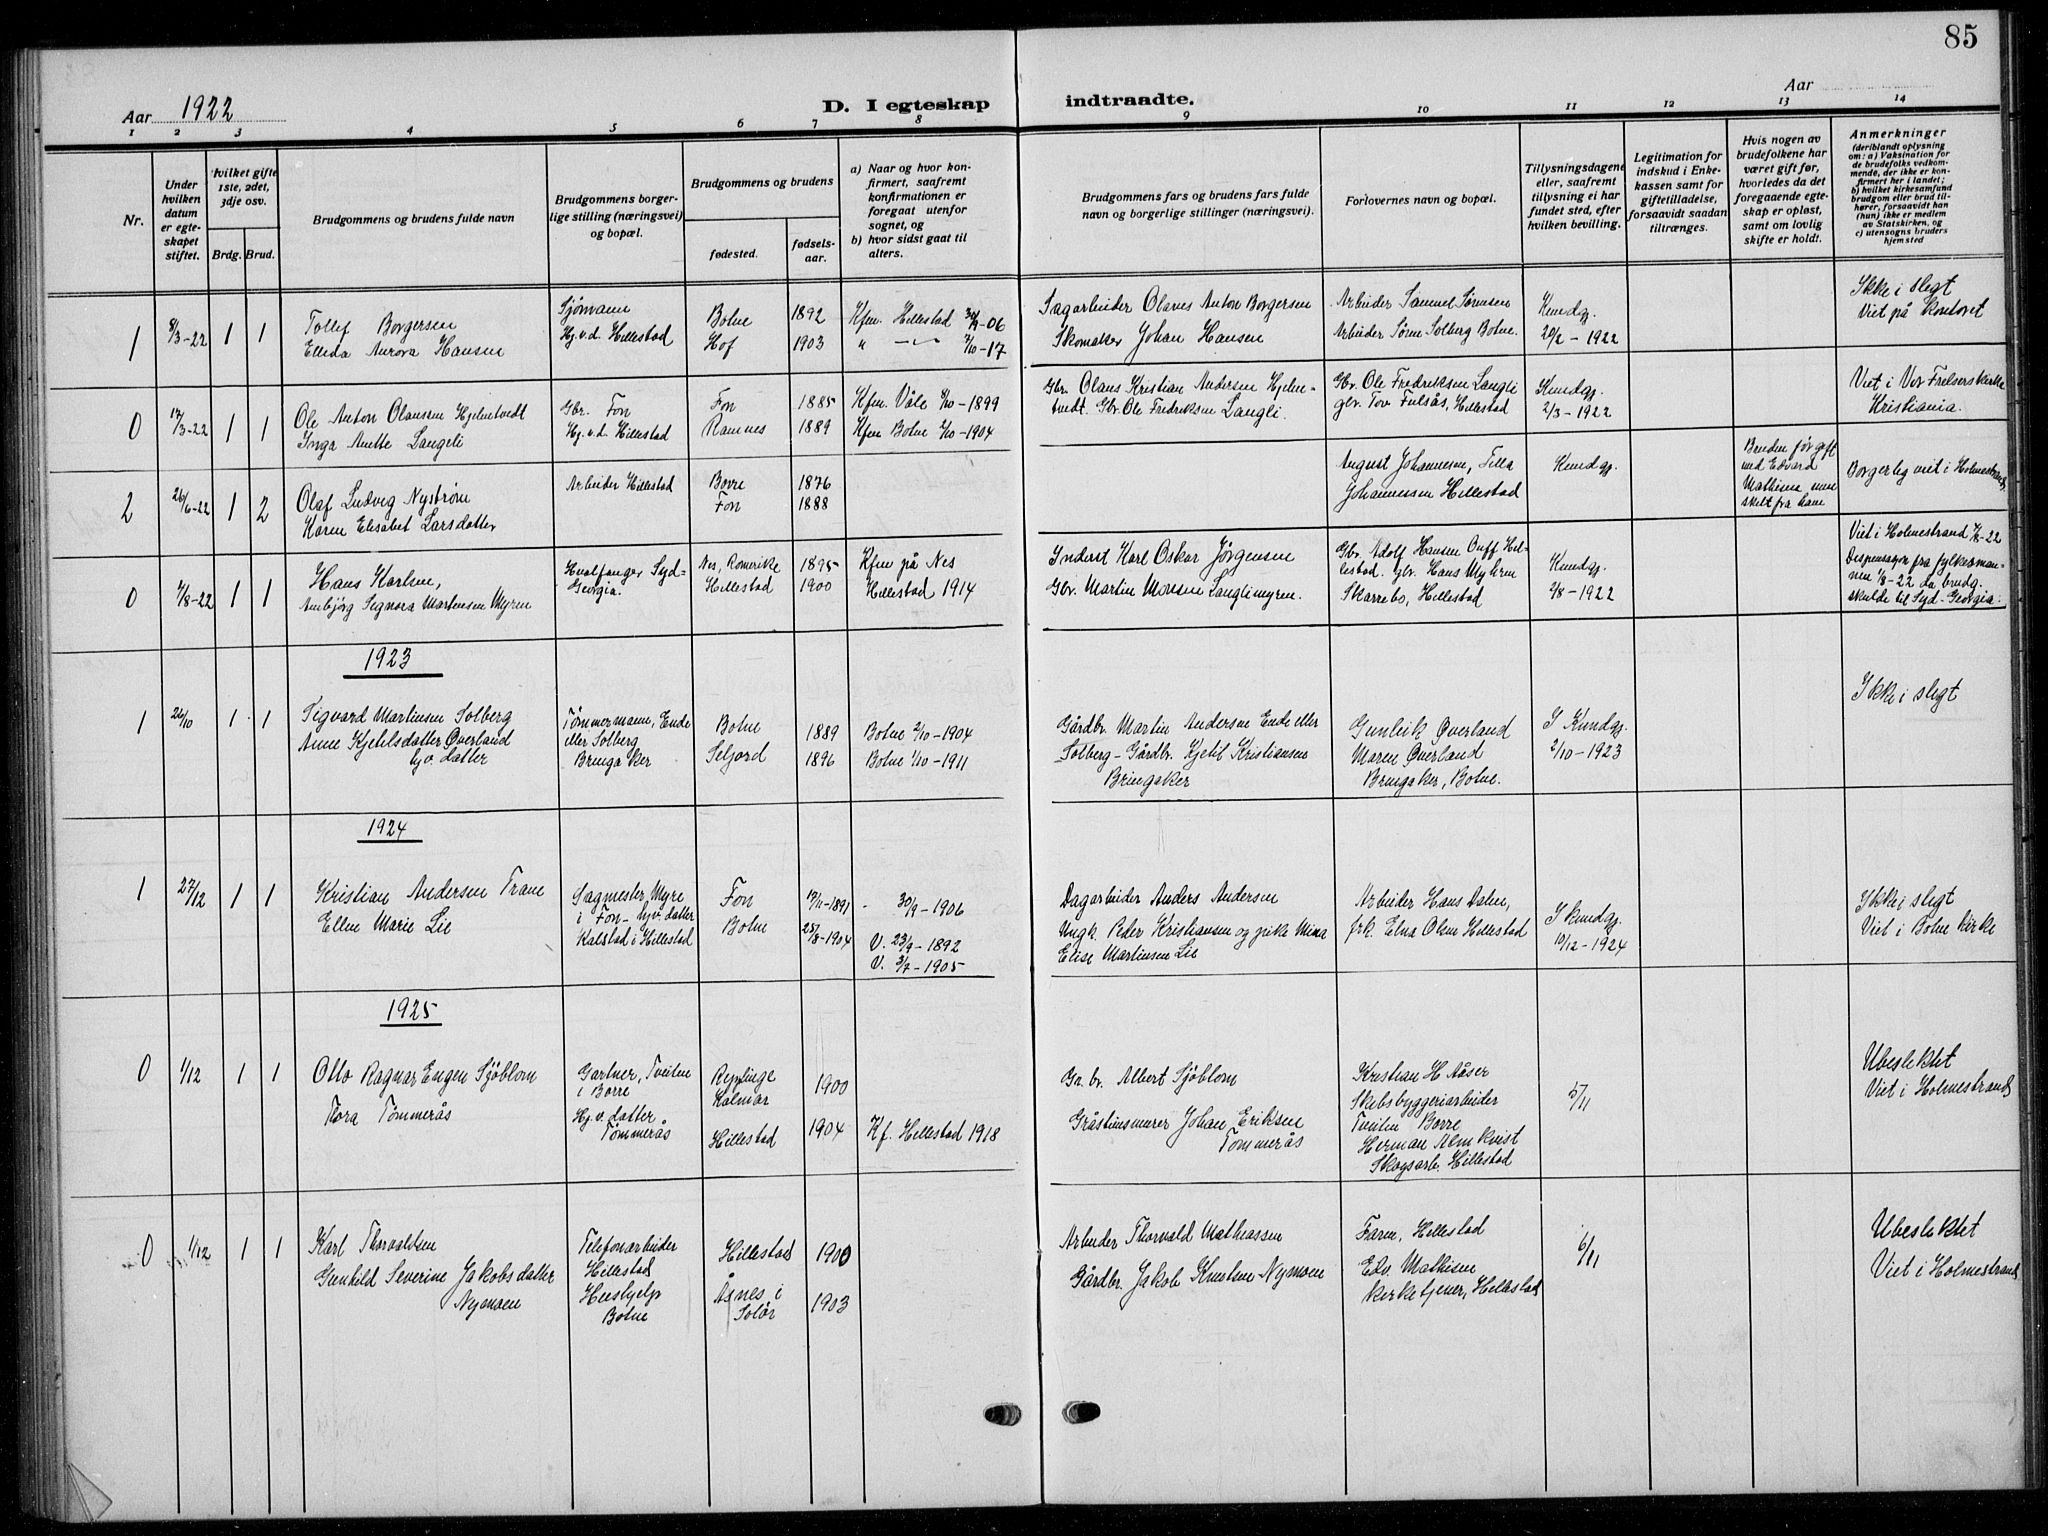 85
Aar 1922
D. I egteskap indtraadte.
Aar
1 2 3 4 5 6 7 8 9 10 11 12 13 14
Nr.
Under hvilken datum er egteskapet stiftet.
Hvilket gifte 1ste, 2det, 3dje osv.
Brdg. Brud.
Brudgommens og brudens fulde navn
Brudgommens borgerlige stilling (næringsvei) og bopæl.
Brudgommens og brudens
fødested.
fødselsaar.
a) Naar og hvor konfirmert, saafremt konfirmationen er foregaat utenfor sognet, og
b) hvor sidst gaat til alters.
Brudgommens fars og brudens fars fulde navn og borgerlige stillinger (næringsvei).
Forlovernes navn og bopæl.
Tillysningsdagene eller, saafremt tillysning ei har fundet sted, efter hvilken bevilling.
Legitimation for indskud i Enkekassen samt for giftetilladelse, forsaavidt saadan tiltrænges.
Hvis nogen av brudefolkene har været gift før, hvorledes da det foregaaende egteskap er opløst, samt om lovlig skifte er holdt.
Anmerkninger
(deriblandt oplysning om: a) Vaksination for de brudefolks vedkommende, der ikke er konfirmert her i landet; b) hvilket kirkesamfund brudgom eller brud tilhører, forsaavidt han (hun) ikke er medlem av Statskirken, og c) utensogns bruders hjemsted
1 8/3-22 1 1
Tollef Borgersen
Elleda Aurora Hansen
Sjømann
Hj.v.d. Hillestad
Botne 1892
Hof 1903
Kfm. Hillestad -06
" 7/10-17
Sagarbeider Olaves Anton Borgersen
Skomaker Johan Hansen
Arbeider Samuel Sørensen
Arbeider Søren Solberg Botne.
Kundgj.
20/2 - 1922
Ikke i slegt
Viet på kontoret
0 17/3-22 1 1
Ole Anton Olaussen Hjelmtvedt
Inga Anette Langeli
Gbr. Fon
Hj.v.d. Hillestad
Fon 1885
Ramnes 1889
Kfm. Våle 8/10-1899
Kfm Botne 2/10-1904
Gbr. Olaus Kristian Andersen Hjelmtvedt. Gbr. Ole Fredriksen Langli.
Gbr. Ole Fredriksen Langli
gbr. Tov Fulsås, Hillestad
Kundgj.
2/3-1922
Viet i Vor Frelserskirke
Kristiania.
2 26/6-22 1 2
Olaf Ludvig Nystrøm
Karen Elisabet Larsdatter
Arbeider Hillestad
Borre 1876
Fon 1888
August Johannesen, Tilla
Johannessen Hillestad
Kundgj.
Bruden før gift
med Edvard
Mathisen men
skilt fra ham
Borgerlig viet i Holmestrand.
0 4/8-22 1 1
Hans Karlsen,
Ambjörg Signora Martensen Myren
Hvalfanger Syd-
Georgia.
Nes, Romerike 1895
Hillestad 1900
Kfm på Nes
Hillestad 1914
Inderst Karl Oskar Jørgensen
Gbr. Martin Monsen Langlimyren.
Gbr. Adolf Hansen Huff Hil-
lestad. gbr. Hans Myhren
Skarrebo, Hillestad
Kundgj.
2/8-1922
Viet i Holmestrand 4/8-22
Dispensasjon fra fylkesman-
nen 1/8-22 da brudg.
skulde til Syd-Georgia.
1923
1 26/10 1 1
Sigvard Martinsen Solberg
Anne Kjetelsdatter Överland
hjv. datter
Tømmermann, Ende
eller Solberg
Bringaker
Botne 1889
Seljord 1896
Botne 2/10-1904
Botne 1/10-1911
Gårdbr. Martin Andersen Ende eller
Solberg - Gårdbr. Kjetil Kristiansen
Bringaker
Gunleik Överland
Maren Överland
Bringaker, Botne.
I Kundgj.
2/10-1923
Ikke i slegt
1924
1 27/12 1 1
Kristian Andersen Trane
Ellen Marie Lie
Sagmester Myre
i Fon - hjv. datter
Kalstad i Hillestad
Fon 17/11-1891
Botne 25/8-1904
- 30/9-1906
V. 23/9-1892
V. 3/7-1905
Dagarbeider Anders Andersen
Ungk. Peder Kristiansen og pike Mina
Elise Martinsen Lie
Arbeider Hans Dalen,
frk. Elna Olsen Hillestad
I kundgj.
10/12-1924
Ikke i slegt
Viet i Botne kirke
1925
0 1/12 1 1
Otto Ragnar Engen Sjöblom
Tora Tømmerås
Gartner, Tveiten
i Borre
Hj.v. datter
Tømmerås
Kalmar 1900
Hillestad 1904
Kf. Hillestad 1918
Ga. br. Albert Sjöblom
Gråstensmurer Johan Eriksen
Tømmerås
Kristian H. Aåser
Skibsbyggeriarbeider
Tveiten Borre
Herman Almkvist
Skogsarb. Hillestad
5/11
Ubeslektet
Viet i Holmestrand
0 1/12 1 1
Karl Thorvaldsen
Gunhild Severine Jakobsdatter
Nymoen
Telefonarbeider
Hillestad
Hushjelp
Botne
Hillestad 1900
Åsnes i
Solör 1903
Arbeider Thorvald Mathiassen
Gårdbr. Jakob Knutsen Nymoen
Faren, Hillestad
Edv. Mathisen
kirketjener, Hillestad
6/11
Ubeslektet
Viet i Holmestrand